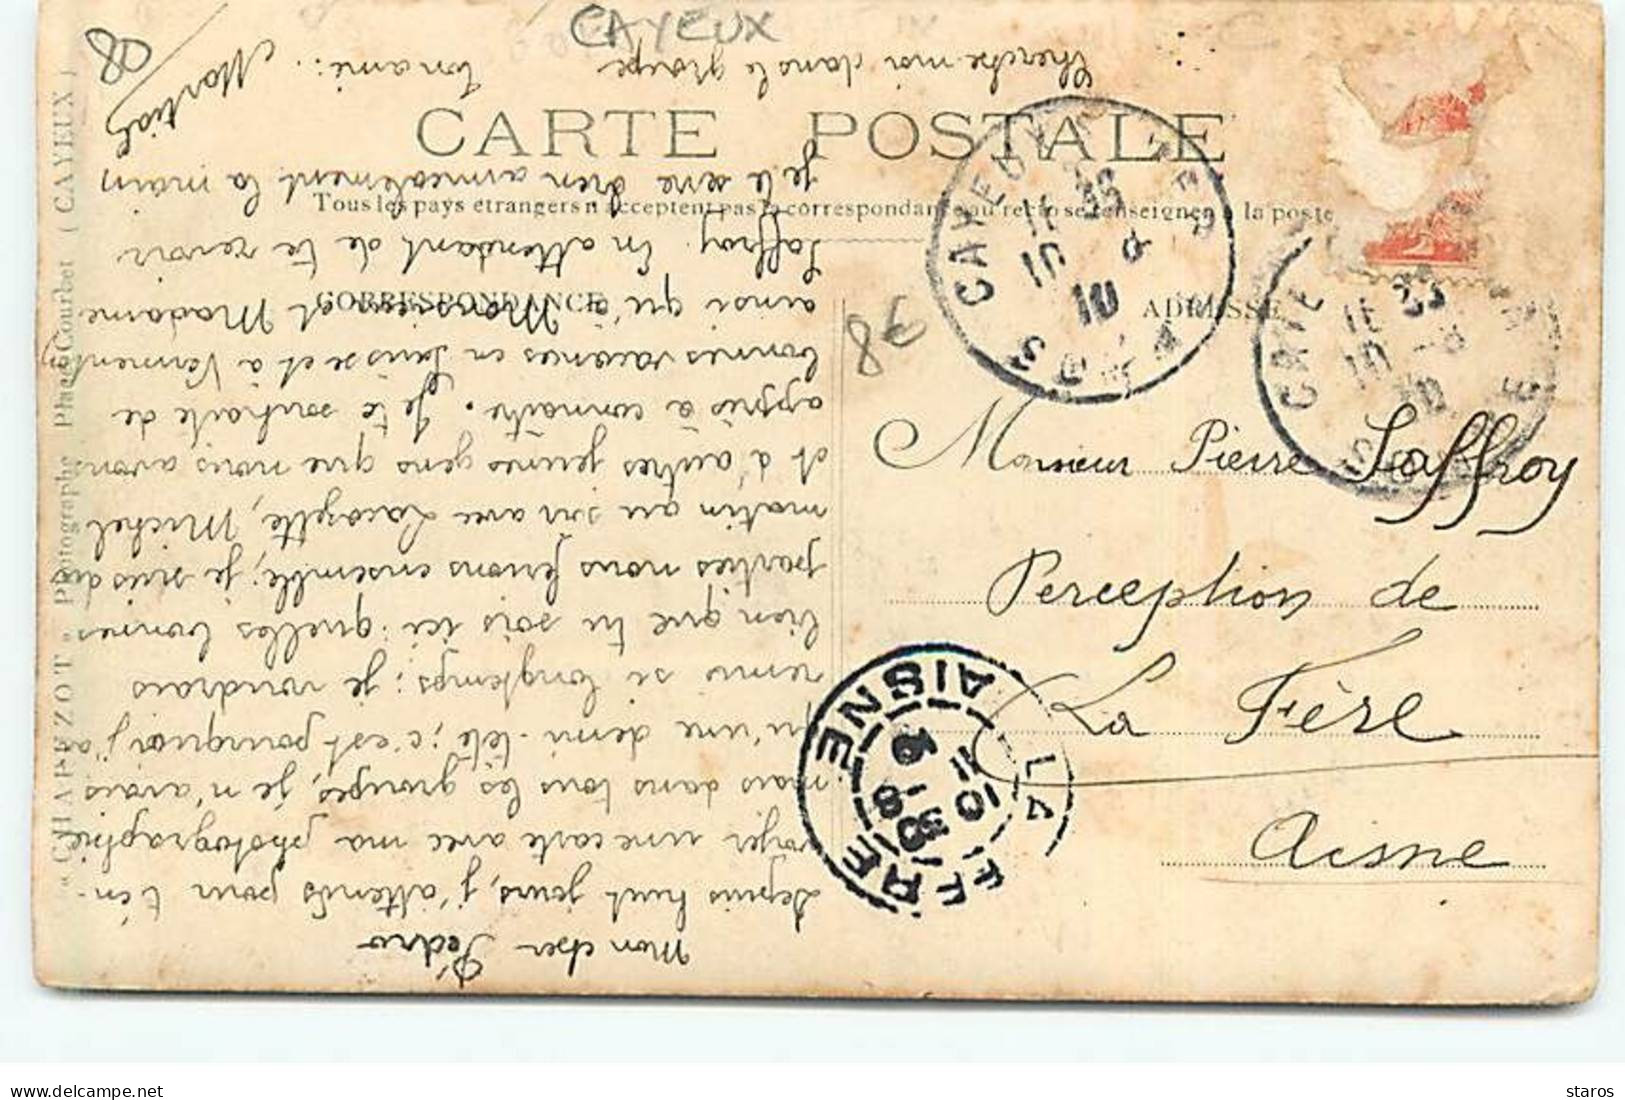 CAYEUX
CARTE POSTALE
Tous les pays étrangers n'acceptent pas la correspondance au recto se renseigner à la poste
CORRESPONDANCE
ADRESSE
Monsieur Pierre Saffroy
Perception de
La Fère
Aisne
Mon cher Pedro
Depuis huit jours, j'attends pour t'en-
voyer une carte avec ma photographie
mais dans tous les groupes, je n'avais
qu'une demi-tête; c'est pourquoi j'ai
remis si longtemps; je voudrais
bien que tu sois ici. quelles bonnes
parties nous ferions ensemble; je suis du
matin au soir avec Lacozette, Michel
et d'autres jeunes gens que nous avons
appris à connaître. Je te souhaite de
bonnes vacances en Suisse et à Verment
ainsi qu'à Monsieur et Madame
Saffroy. En attendant de te revoir
je te serre bien amicalement la main
Ton ami:. Martial
Cherche-moi dans le groupe
80
78
CAYEUX
SOMME
11 25
10 -8
10
CAYE
11 25
10 -8
10
LA FERE
AISNE
" CHAPEZOT " Photographe, Place Courbet ( CAYEUX )
staros
delcampe.net